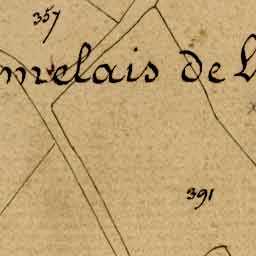 357
melais de l
391